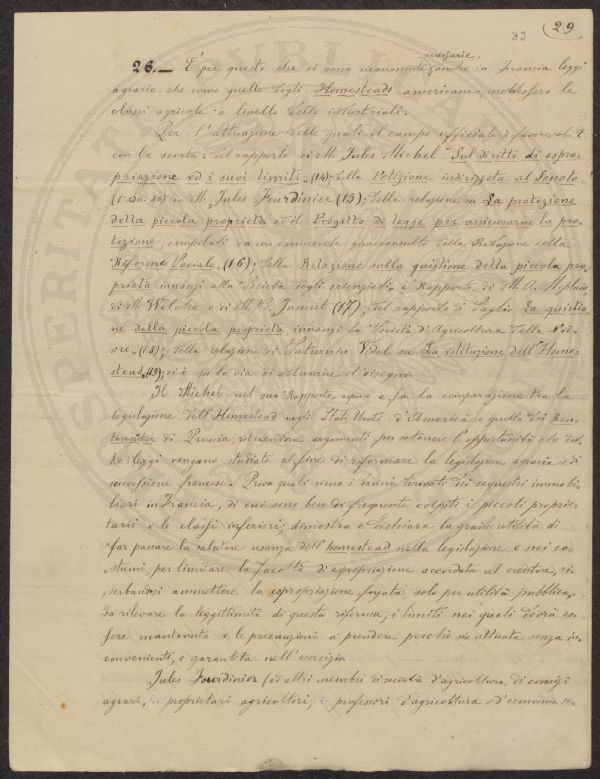 29
necessarie
26. — E' per questo che si sono riconosciute anche in Francia leggi
agrarie che come quelle degli Homesteads americane, mettessero le
classi agricole a livello delle industriali.
Per l'attuazione delle quali il campo officiale è favorevole. E
con la scorta: del rapporto di M. Jules Michel "Sul diritto di espro-
priazione ed i suoi limiti" (14); della Petizione indirizzata al Senato
di M. Jules Fourdinier (15); della relazione su La protezione
della piccola proprietà ed il Progetto di legge per assicurarne la pro-
tezione, compilati da un eminente giureconsulto della Redazione della
Réforme Sociale" (16); della Relazione sulla quistione della piccola pro-
prietà innanzi alla Società degli scienziati e Rapporto di M. A.
di M. Welche e di M. C. Jannet (17); del rapporto di La quistio-
ne della piccola proprietà, innanzi la Società d'Agricoltura della Niè-
vre" (18); della relazione di Saturnin Vidal su La istituzione dell'"Home-
stead" (19); si è su la via di attuarne il disegno.
Il Michel nel suo "Rapporto" espone e fa la comparazione tra la
legislazione dell'Homestead negli Stati Uniti d'America e quella dei Ren-
tengüter di Prussia, ritraendone argomenti per sostenere l'opportunità che det-
te leggi vengano studiate al fine di riformare la legislazione agraria e di
successione francese. Prova quali sieno i danni derivati dei sequestri immobi-
liari in Francia, di cui sono ben di frequente colpiti i piccoli proprie-
tarii e le classi inferiori; dimostra e dichiara la grande utilità di
far passare la salutare usanza dell'homestead nella legislazione e nei co-
stumi, per limitare la facoltà di espropriazione accordata al creditore, ri-
serbandosi ammettere la espropriazione forzata solo per utilità pubblica.
Fa rilevare la leggittimità di questa riforma, i limiti nei quali dovrà es-
sere mantenuta e le precauzioni a prendere perchè sia attuata senza in-
convenienti, e garantita nell'esercizio.
Jules Fourdinier (ed altri membri di società d'agricoltura, di comizi
agrari, proprietari agricoltori, professori d'agricoltura e d'economia so-